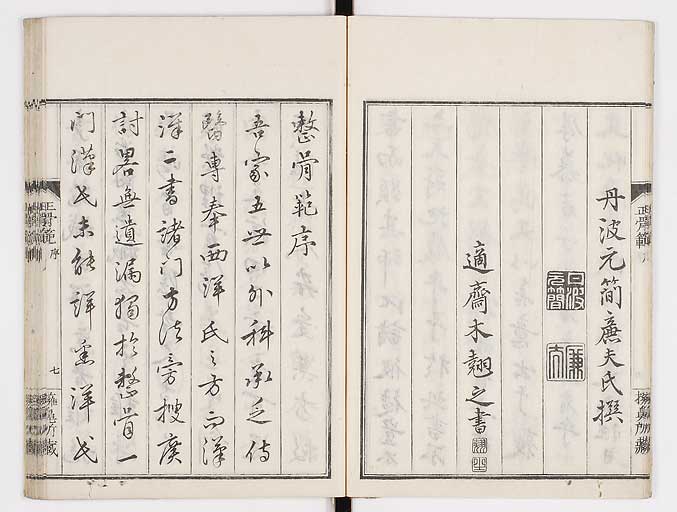 丹波元簡廉夫氏撰
丹波元簡
廉夫
適齋木翹之書
整骨範序
吾家五世以外科承乏侍
醫專奉西洋氏之方而漢
洋二書諸門方法旁搜廣
討畧無遺漏獨於整骨一
門漢氏未能詳悉洋氏
正骨範 序
七